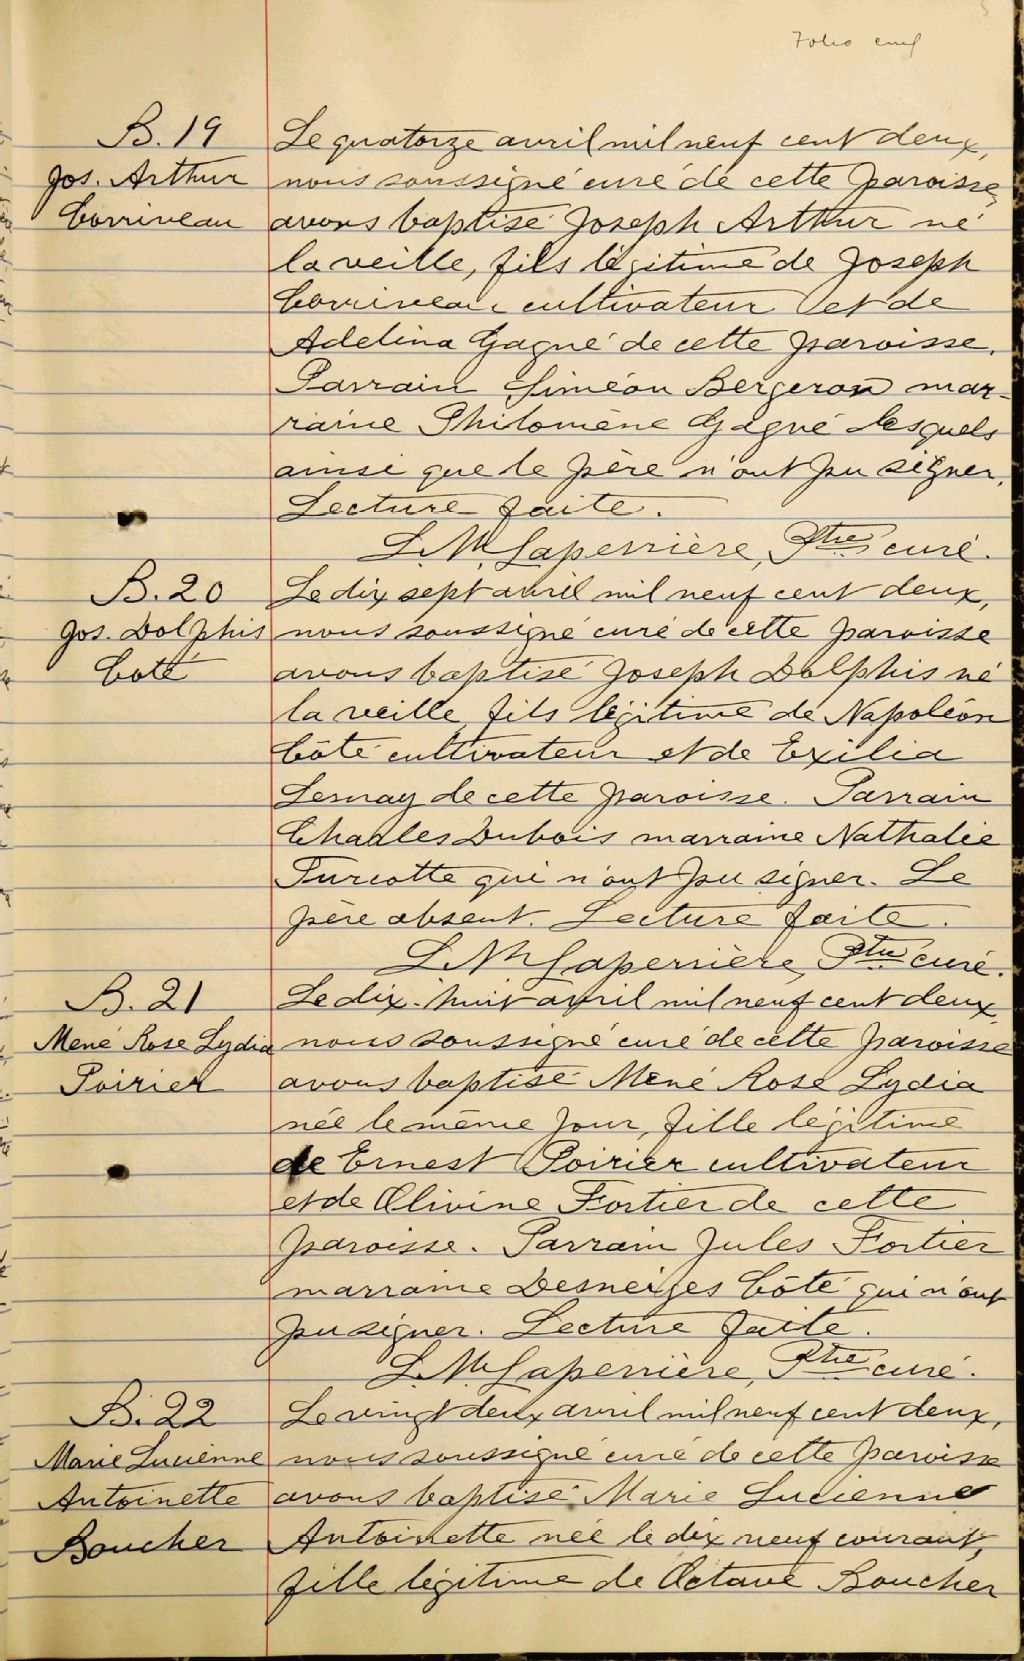 Folio cinq
B. 19
Jos. Arthur
Corriveau
Le quatorze avril mil neuf cent deux,
nous soussigné curé de cette paroisse,
avons baptisé Joseph Arthur né
la veille, fils légitime de Joseph
Corriveau cultivateur et de
Adelina Gagné de cette paroisse.
Parrain Siméon Bergeron mar-
raine Philomène Gagné lesquels
ainsi que le père n'ont pu signer.
Lecture faite.
L. M. Laperrière, Ptre curé.
B. 20
Jos. Dolphis
Coté
Le dix sept avril mil neuf cent deux,
nous soussigné curé de cette paroisse
avons baptisé Joseph Dolphis né
la veille, fils légitime de Napoléon
Côté cultivateur et de Exilia
Lemay de cette paroisse. Parrain
Charles Dubois marraine Nathalie
Turcotte qui n'ont pu signer. Le
père absent. Lecture faite.
L. M. Laperrière, Ptre curé.
B. 21
Mené Rose Lydia
Poirier
Le dix-huit avril mil neuf cent deux,
nous soussigné curé de cette paroisse
avons baptisé Mené Rose Lydia
née le même jour, fille légitime
de Ernest Poirier cultivateur
et de Olivine Fortier de cette
paroisse. Parrain Jules Fortier
marraine Desneiges Côté qui n'ont
pu signer. Lecture faite.
L. M. Laperrière, Ptre curé.
B. 22
Marie Lucienne
Antoinette
Boucher
Le vingt deux avril mil neuf cent deux,
nous soussigné curé de cette paroisse
avons baptisé Marie Lucienne
Antoinette née le dix neuf courant,
fille légitime de Octave Boucher